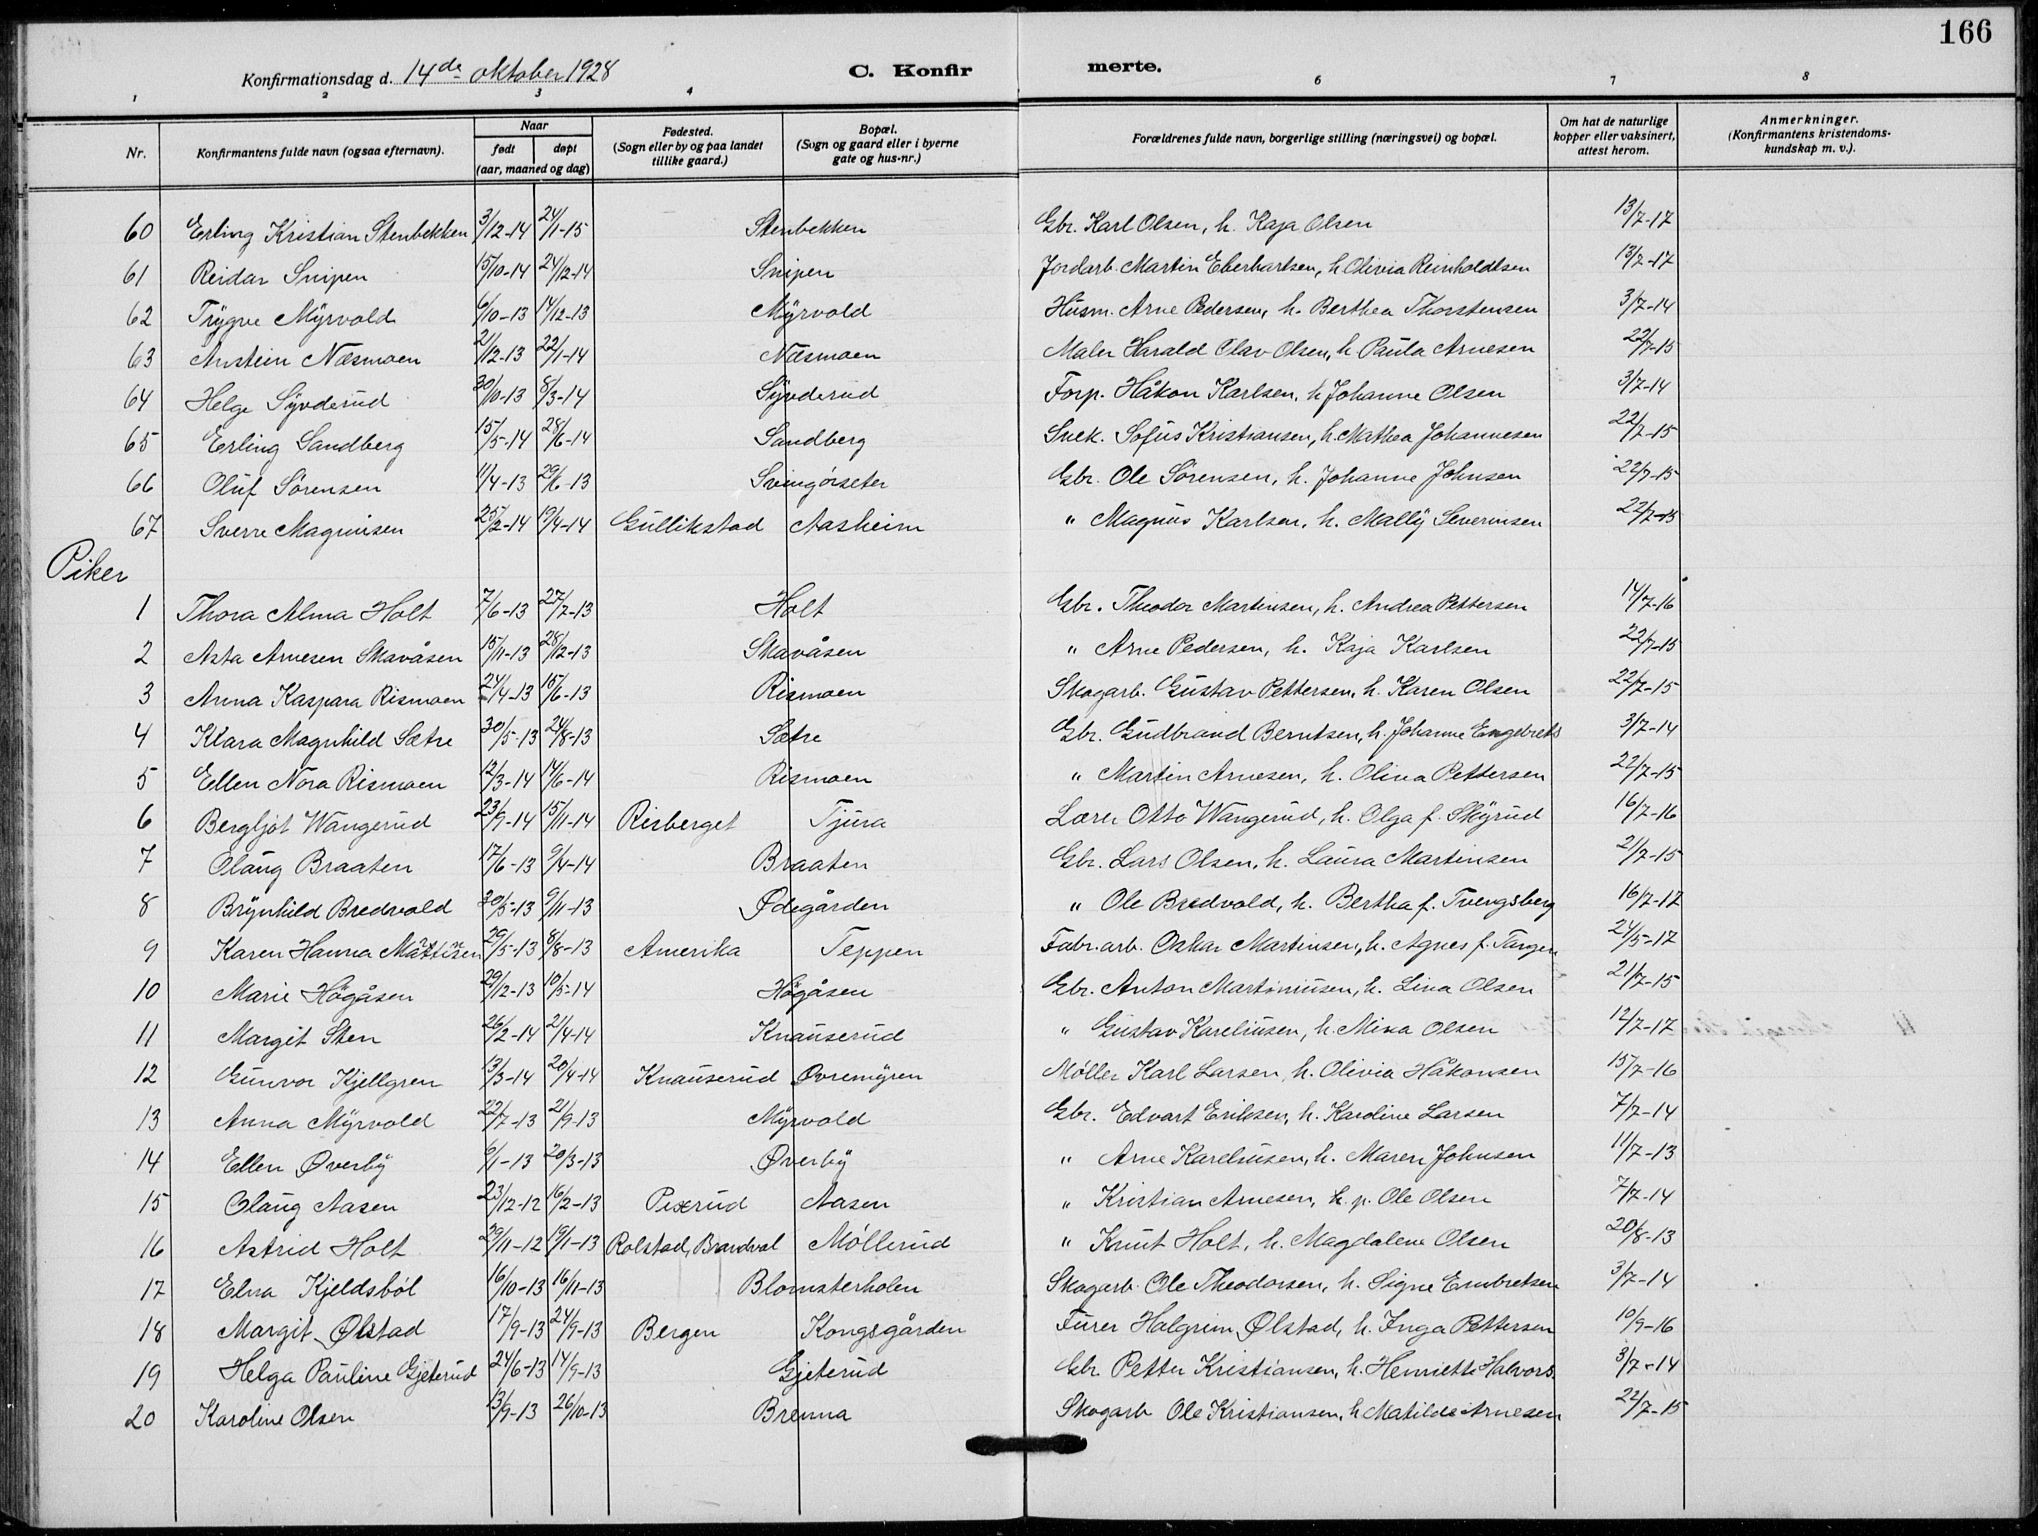 166
Konfirmationsdag d. 14de oktober 1928 C. Konfir merte.
1 2 3 4 6 7 8
Nr. Konfirmantens fulde navn (ogsaa efternavn). Naar født døpt (aar, maaned og dag) Fødested. (Sogn eller by og paa landet tillike gaard.) Bopæl. (Sogn og gaard eller i byerne gate og hus-nr.) Forældrenes fulde navn, borgerlige stilling (næringsvei) og bopæl. Om hat de naturlige kopper eller vaksinert, attest herom. Anmerkninger. (Konfirmantens kristendoms-kundskap m. v.).
60 Erling Kristian Stenbekken 3/12-14 24/1-15 Stenbekken Gbr. Karl Olsen, h. Kaja Olsen 13/7-17
61 Reidar Snipen 15/10-14 24/12-14 Snipen Jordarb. Martin Eberhartsen, h Olivia Reinholdtsen 13/7-17
62 Trygve Myrvold 6/10-13 14/12-13 Myrvold Husm. Arne Pedersen, h. Berthea Thorstensen 3/7-14
63 Anstein Næsmoen 21/12-13 22/1-14 Næsmoen Maler Harald Olav Olsen, h Paula Arnesen 22/7-15
64 Helge Syvderud 30/10-13 8/3-14 Syvderud Forp. Håkon Karlsen, h Johanne Olsen 3/7-14
65 Erling Sandberg 15/5-14 28/6-14 Sandberg Snek. Sofus Kristiansen, h. Mathea Johannesen 22/7-15
66 Oluf Sörensen 11/4-13 29/6-13 Svingörseter Gbr. Ole Sörensen, h. Johanne Johnsen 22/7-15
67 Sverre Magnusen 25/2-14 19/4-14 Gullikstad Aasheim " Magnus Karlsen, h. Mally Severinsen 22/7-15
Piker
1 Thora Alma Holt 7/6-13 27/7-13 Holt Gbr. Theodor Martinsen, h. Andrea Pettersen 14/7-16
2 Asta Arnesen Skavåsen 15/11-13 28/12-13 Skavåsen " Arne Pedersen, h. Kaja Karlsen 22/7-15
3 Anna Kaspara Rismoen 24/4-13 15/6-13 Rismoen Skogarb. Gustav Pettersen, h. Karen Olsen 22/7-15
4 Klara Magnhild Sætre 30/5-13 24/8-13 Sætre Gbr. Gudbrand Berntsen, h. Johanne Engebrets 3/7-14
5 Ellen Nora Rismoen 12/3-14 14/6-14 Rismoen " Martin Arnesen, h. Olina Pettersen 22/7-15
6 Bergljot Wangerud 23/9-14 15/11-14 Risberget Tjura Lærer Otto Wangerud, h. Olga f. Skyrud 16/7-16
7 Olaug Braaten 17/6-13 9/4-14 Braaten Gbr. Lars Olsen, h. Laura Martinsen 21/7-15
8 Brynhild Bredvold 30/5-13 9/11-13 Ødegården " Ole Bredvold, h. Bertha f. Tvengsberg 16/7-17
9 Karen Hanna Martinsen 29/5-13 8/8-13 Amerika Teppen Fabr. arb. Oskar Martinsen, h. Agnes f. Tangen 24/5-17
10 Marie Högåsen 29/12-13 10/5-14 Högåsen Gbr. Anton Martiniusen, h. Lina Olsen 21/7-15
11 Margit Sten 26/2-14 21/4-14 Knauserud " Gustav Kareliusen, h. Mina Olsen 12/7-17
12 Gunvor Kjellgren 13/3-14 20/4-14 Knauserud Øvremyren Møller Karl Larsen, h. Olivia Håkonsen 15/7-16
13 Anna Myrvold 22/7-13 21/9-13 Myrvold Gbr. Edvart Eriksen, h. Karoline Larsen 7/7-14
14 Ellen Øverby 6/1-13 20/3-13 Øverby " Arne Kareliusen, h. Maren Johnsen 11/7-13
15 Olaug Aasen 23/12-12 16/2-13 Pexerud Aasen " Kristian Arnesen, h. p. Ole Olsen 7/7-14
16 Astrid Holt 29/11-12 19/1-13 Rolstad, Brandval Möllerud " Knut Holt, h. Magdalene Olsen 20/8-13
17 Elna Kjeldsböl 16/10-13 16/11-13 Blomsterholen Skogarb. Ole Theodorsen, h. Signe Embretsen 3/7-14
18 Margit Ølstad 17/9-13 24/9-13 Bergen Kongsgården Furer Halgrim Ølstad, h. Inga Pettersen 10/9-16
19 Helga Pauline Gjeterud 24/6-13 14/9-13 Gjeterud Gbr Petter Kristiansen, h. Henriette Halvors. 3/7-14
20 Karoline Olsen 13/9-13 26/10-13 Brenna Skogarb Ole Kristiansen, h Matilde Arnesen 22/7-15